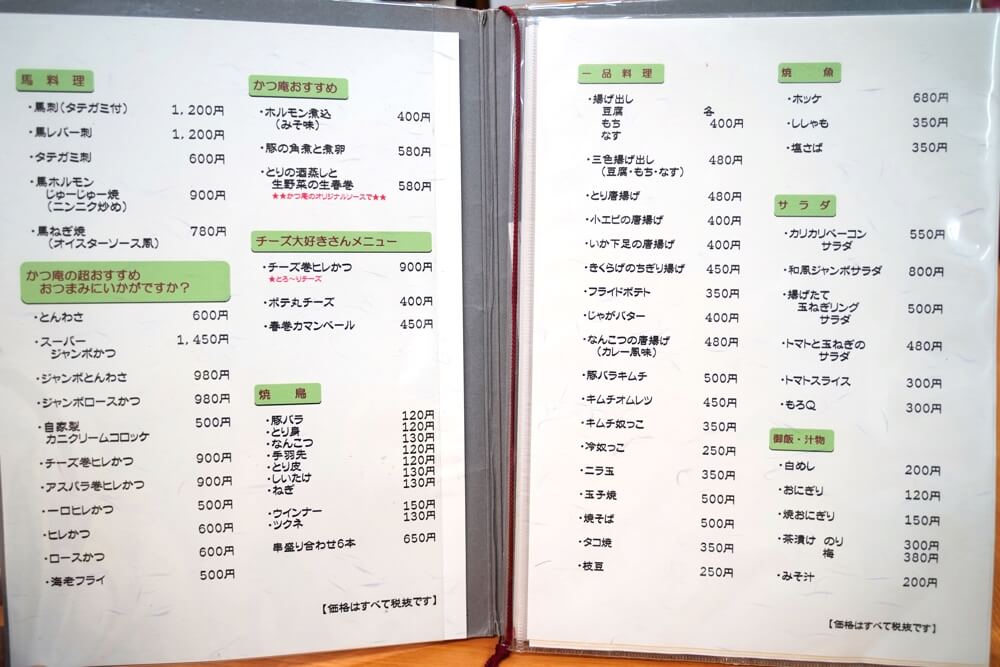 馬料理
・馬刺(タテガミ付) 1,200円
・馬レバー刺 1,200円
・タテガミ刺 600円
・馬ホルモン
じゅーじゅー焼 900円
(ニンニク炒め)
・馬ねぎ焼 780円
(オイスターソース風)
かつ庵の超おすすめ
おつまみにいかがですか？
・とんわさ 600円
・スーパー 1,450円
ジャンボかつ
・ジャンボとんわさ 980円
・ジャンボロースかつ 980円
・自家製 500円
カニクリームコロッケ
・チーズ巻ヒレかつ 900円
・アスパラ巻ヒレかつ 900円
・一口ヒレかつ 500円
・ヒレかつ 600円
・ロースかつ 600円
・海老フライ 500円
かつ庵おすすめ
・ホルモン煮込 400円
(みそ味)
・豚の角煮と煮卵 580円
・とりの酒蒸しと
生野菜の生春巻 580円
★★かつ庵のオリジナルソースで★★
チーズ大好きさんメニュー
・チーズ巻ヒレかつ 900円
★とろ〜りチーズ
・ポテ丸チーズ 400円
・春巻カマンベール 450円
焼鳥
・豚バラ 120円
・とり身 120円
・なんこつ 130円
・手羽先 120円
・とり皮 120円
・しいたけ 130円
・ねぎ 130円
・ウインナー 150円
・ツクネ 130円
串盛り合わせ6本 650円
【価格はすべて税抜です】
一品料理
・揚げ出し
豆腐 各
もち 400円
なす
・三色揚げ出し 480円
(豆腐・もち・なす)
・とり唐揚げ 480円
・小エビの唐揚げ 400円
・いか下足の唐揚げ 400円
・きくらげのちぎり揚げ 450円
・フライドポテト 350円
・じゃがバター 400円
・なんこつの唐揚げ 480円
(カレー風味)
・豚バラキムチ 500円
・キムチオムレツ 450円
・キムチ奴っこ 350円
・冷奴っこ 250円
・ニラ玉 350円
・玉子焼 500円
・焼そば 500円
・タコ焼 350円
・枝豆 250円
焼魚
・ホッケ 680円
・ししゃも 350円
・塩さば 350円
サラダ
・カリカリベーコン 550円
サラダ
・和風ジャンボサラダ 800円
・揚げたて
玉ねぎリング 500円
サラダ
・トマトと玉ねぎの 480円
サラダ
・トマトスライス 300円
・もろQ 300円
御飯・汁物
・白めし 200円
・おにぎり 120円
・焼おにぎり 150円
・茶漬け のり 300円
梅 380円
・みそ汁 200円
【価格はすべて税抜です】